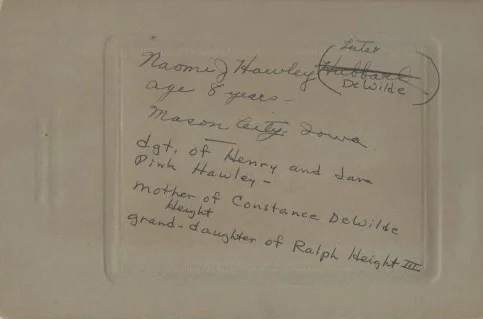 Later
Naomi J Hawley (Hubbard
DeWilde)
age 8 years -
Mason City, Iowa.
dgt. of Henry and Jane
Pink Hawley -
mother of Constance DeWilde
Height
grand-daughter of Ralph Height III